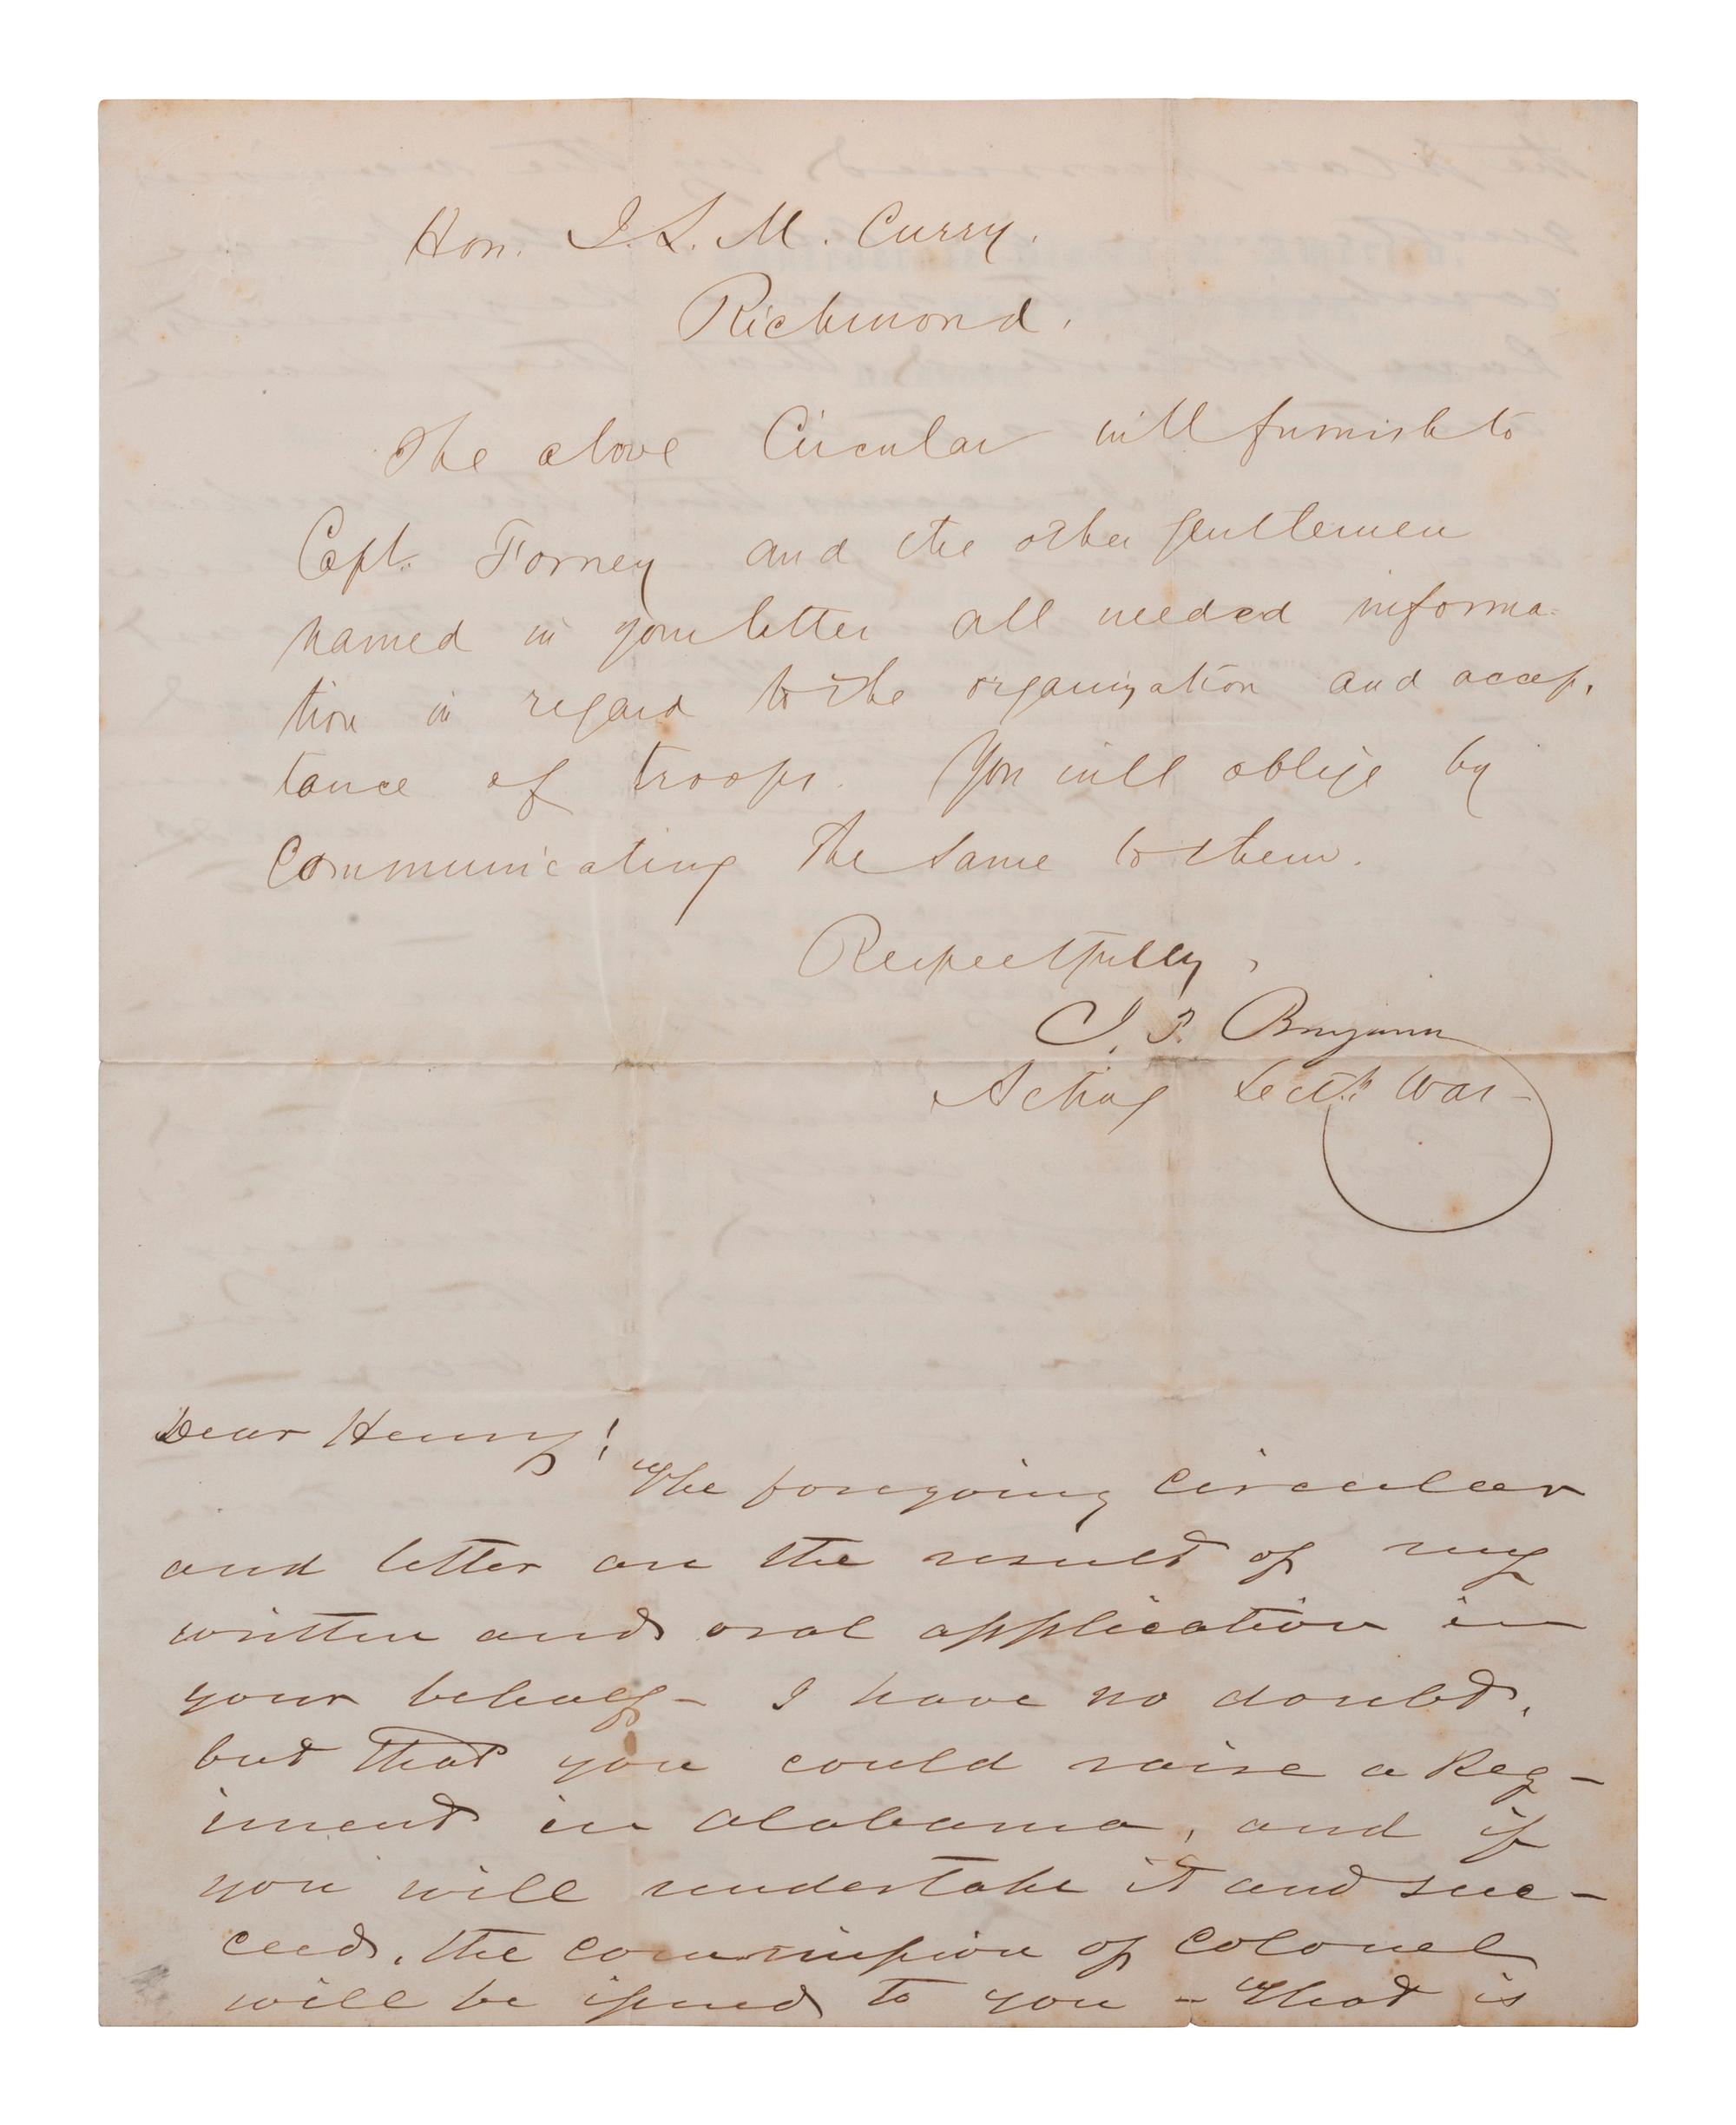 Hon. J. L. M. Curry.
Richmond.
The above Circular will furnish to
Capt. Forney and the other gentlemen
named in your letter all needed informa-
tion in regard to the organization and accep-
tance of troops. You will oblige by
Communicating the same to them.
Respectfully,
J. P. Benjamin
Acting Secty War -
Dear Henry!
The foregoing circular
and letter are the result of my
written and oral application in
your behalf - I have no doubt,
but that you could raise a Reg-
iment in Alabama, and if
you will undertake it and suc-
ceed, the commission of Colonel
will be issued to you - That is